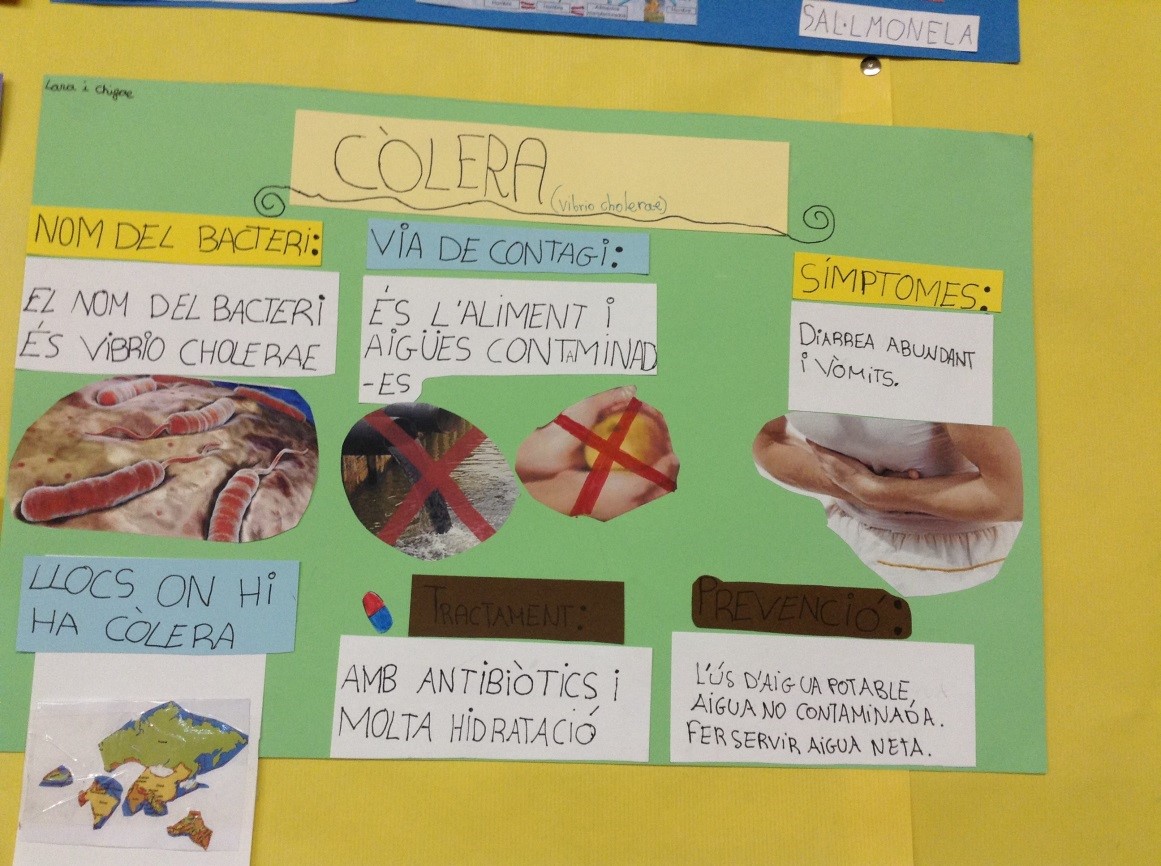 SAL·LMONELA
Lara i
CÒLERA
(Vibrio cholerae)
NOM DEL BACTERI:
EL NOM DEL BACTERI
ÉS VIBRIO CHOLERAE
VIA DE CONTAGI:
ÉS L'ALIMENT I
AIGÜES CONTAMINAD
-ES
SÍMPTOMES:
DIARREA ABUNDANT
I VÒMITS.
LLOCS ON HI
HA CÒLERA
TRACTAMENT:
AMB ANTIBIÒTICS I
MOLTA HIDRATACIÓ
PREVENCIÓ:
L'ÚS D'AIGUA POTABLE,
AIGUA NO CONTAMINADA.
FER SERVIR AIGUA NETA.